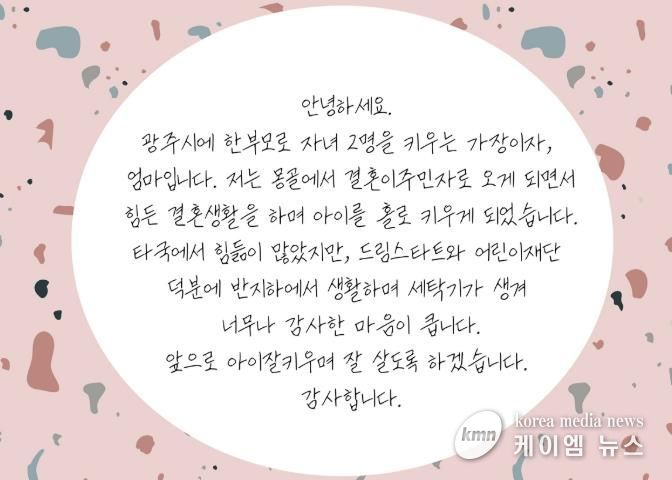 안녕하세요.
광주시에 한부모로 자녀 2명을 키우는 가장이자,
엄마입니다. 저는 몽골에서 결혼이주민자로 오게 되면서
힘든 결혼생활을 하며 아이를 홀로 키우게 되었습니다.
타국에서 힘듦이 많았지만, 드림스타트와 어린이재단
덕분에 반지하에서 생활하며 세탁기가 생겨
너무나 감사한 마음이 큽니다.
앞으로 아이잘키우며 잘 살도록 하겠습니다.
감사합니다.
kmn
korea media news
케이엠 뉴스